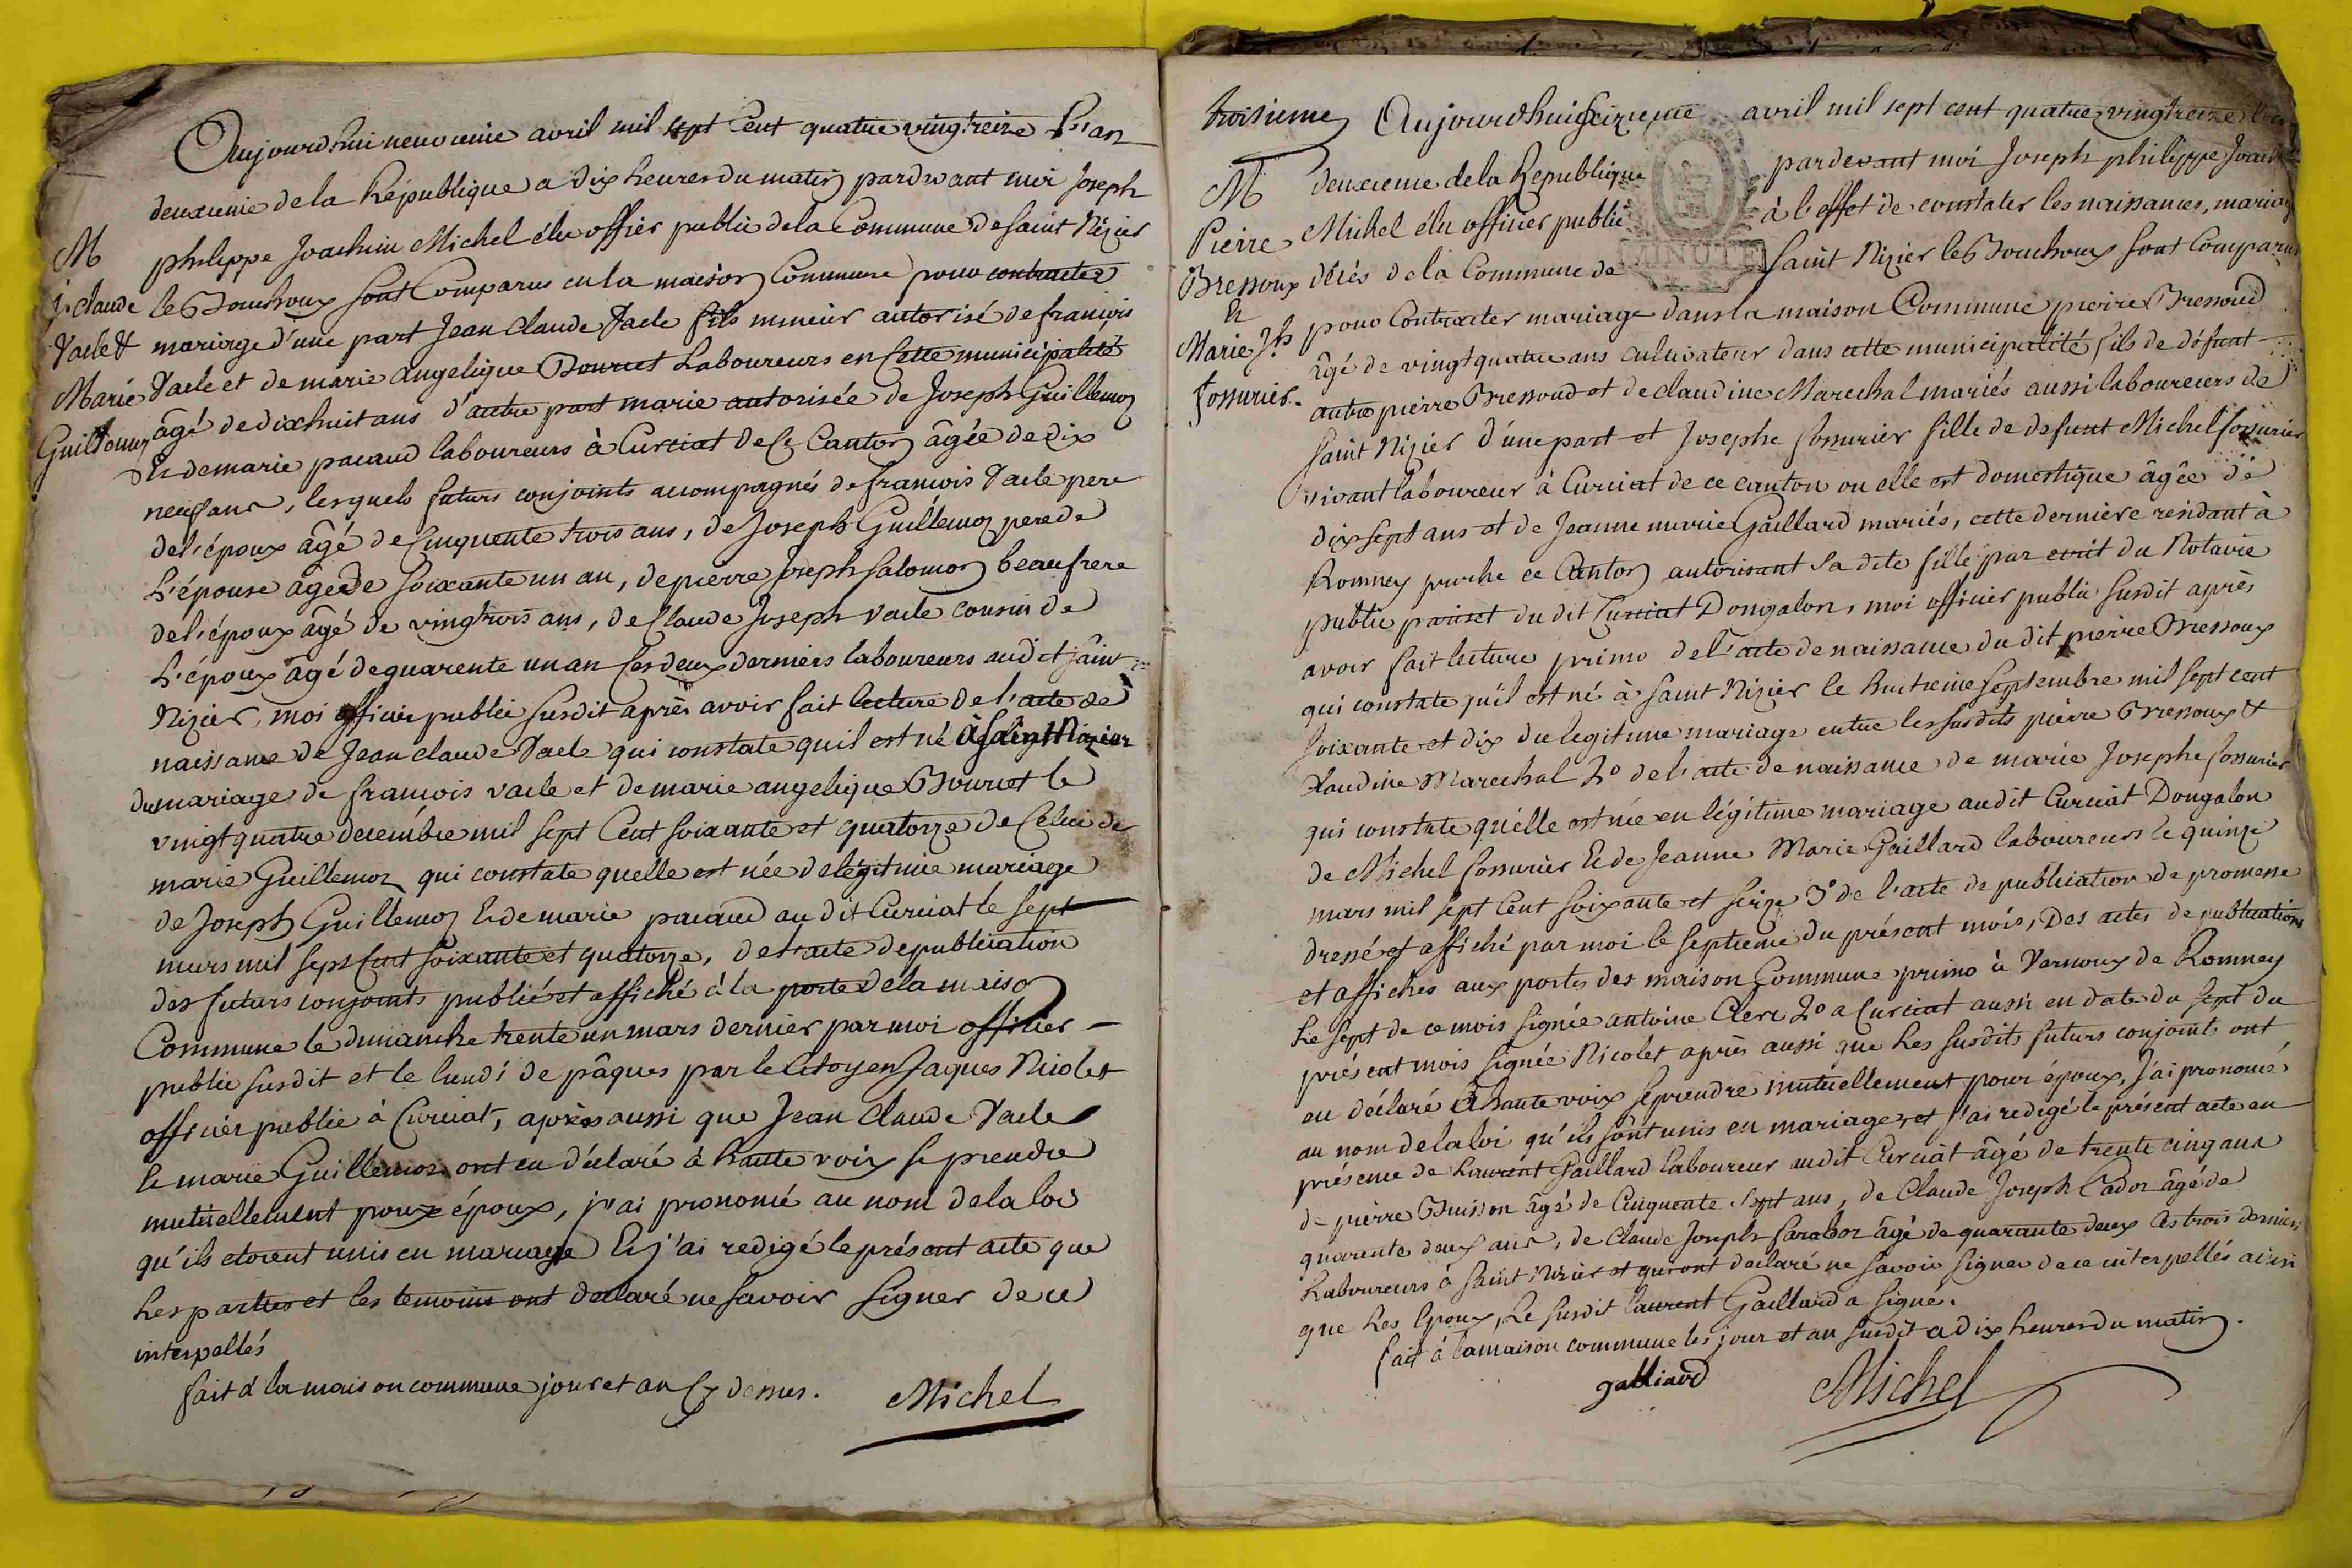 Aujourdhui neuvieme avril mil sept Cent quatre vingtreize L'an
deuxieme de la République a dix heures du matin pardevant moi Joseph
philippe Joachim Michel élu officier public de la Commune de Saint Nizier
le Bouchoux sont Comparus en la maison Commune pour contracter
mariage d'une part Jean Claude Vacle fils mineur autorisé de françois
Vacle et de marie angelique Bourcet Laboureurs en Cette municipalité
âgé de dixhuit ans d'autre part marie autorisée de Joseph Guillemoz
Et de marie pacaud laboureurs à Curciat de Ce Canton âgée de dix
neuf ans, lesquels futurs conjoints accompagnés de francois Vacle pere
de l'époux âgé de Cinquente trois ans, de Joseph Guillemoz pere de
L'épouse agée de soixante un an, de pierre Joseph Salomon beaufrere
de l'époux âgé de vingtrois ans, de Claude Joseph Vacle cousin de
L'époux âgé de quarente un an les deux derniers laboureurs audit Saint
Nizier, moi officier public susdit après avoir fait lecture de l'acte de
naissance de Jean claude Vacle qui constate quil est né à Saint Nizier
du mariage de francois vacle et de marie angelique Bourcet le
vingt quatre decembre mil sept Cent soixante et quatorze de Celui de
marie Guillemoz qui constate quelle est née de légitime mariage
de Joseph Guillemoz Et de marie pacaud au dit Curciat le sept
mars mil sept Cent soixante et quatorze, de l'acte de publication
des futurs conjoints publié et affiché à la porte de la maison
Commune le dimanche trente un mars dernier par moi officier
public susdit et le lundi de pâques par le Citoyen Jaques Nicolet
officier public à Curciat, après aussi que Jean Claude Vacle
Et marie Guillemoz ont eu déclaré à haute voix se prendre
mutuellement pour époux, j'ai prononcé au nom de la loi
qu'ils etoient unis en mariage Et j'ai redigé le présent acte que
Les parties et les temoins ont declaré ne savoir signer de ce
interpellés
fait à la maison commune jour et an Cy dessus.
Michel
M
J. claude
Vacle &
Marie
Guillemoz
troisieme
Aujourdhui Seizieme avril mil sept cent quatre vingtreize
deuxieme de la Republique pardevant moi Joseph philippe
Michel élu officier public à l'effet de constater les naissances,
décès de la Commune de Saint Nizier le Bouchoux sont Comparus
MINUTE
pour Contracter mariage dans la maison Commune pierre Bressoud
âgé de vingt quatre ans cultivateur dans cette municipalité fils de défunt
autre pierre Bressoud et de claudine Marechal mariés aussi laboureurs de
Saint Nizier d'une part et Josephe Cossurier fille de defunt Michel Cossurier
vivant laboureur à Curciat de ce canton ou elle est domestique âgée de
dix sept ans et de Jeanne marie Gaillard mariés, cette derniere residant à
Romney proche ce Canton autorisant sa dite fille par ecrit du Notaire
public du dit Curciat Dongalon, moi officier public susdit après
avoir fait lecture primo de l'acte de naissance du dit pierre Bressoux
qui constate qu'il est né à Saint Nizier le huitieme septembre mil sept cent
soixante et dix du legitime mariage entre les susdits pierre Bressoux &
Claudine Marechal 2º de l'acte de naissance de marie Josephe Cossurier
qui constate qu'elle est née en légitime mariage audit Curciat Dongalon
de Michel Cossurier Et de Jeanne Marie Gaillard laboureurs le quinze
mars mil sept Cent soixante et seize 3º de l'acte de publication de promesse
dressé et affiché par moi le septieme du présent mois, Des actes de publications
et affiches aux portes des maison Commune primo à Vernoux de Romney
Le sept de ce mois signée antoine Clerc 2º a Curciat aussi en date du sept du
présent mois signée Nicolet après aussi que Les susdits futurs conjoints ont
eu déclaré à haute voix se prendre mutuellement pour époux, j'ai prononcé
au nom de la loi qu'ils sont unis en mariage, et j'ai redigé le présent acte en
présence de Laurent Gaillard laboureur audit Curciat âgé de trente cinq ans
de pierre Buisson âgé de Cinquente sept ans, de Claude Joseph Cadoz âgé de
quarente deux ans, de Claude Joseph âgé de quarante deux Les trois derniers
Laboureurs à Saint Nizier et qui ont declaré ne savoir signer de ce interpellés ainsi
que Les Epoux, Le susdit laurent Gaillard a signé.
fait à la maison commune les jour et an susdit a dix heures du matin.
galliard
Michel
M
Pierre
Bressoux
Et
Marie Jh
Cossurier.